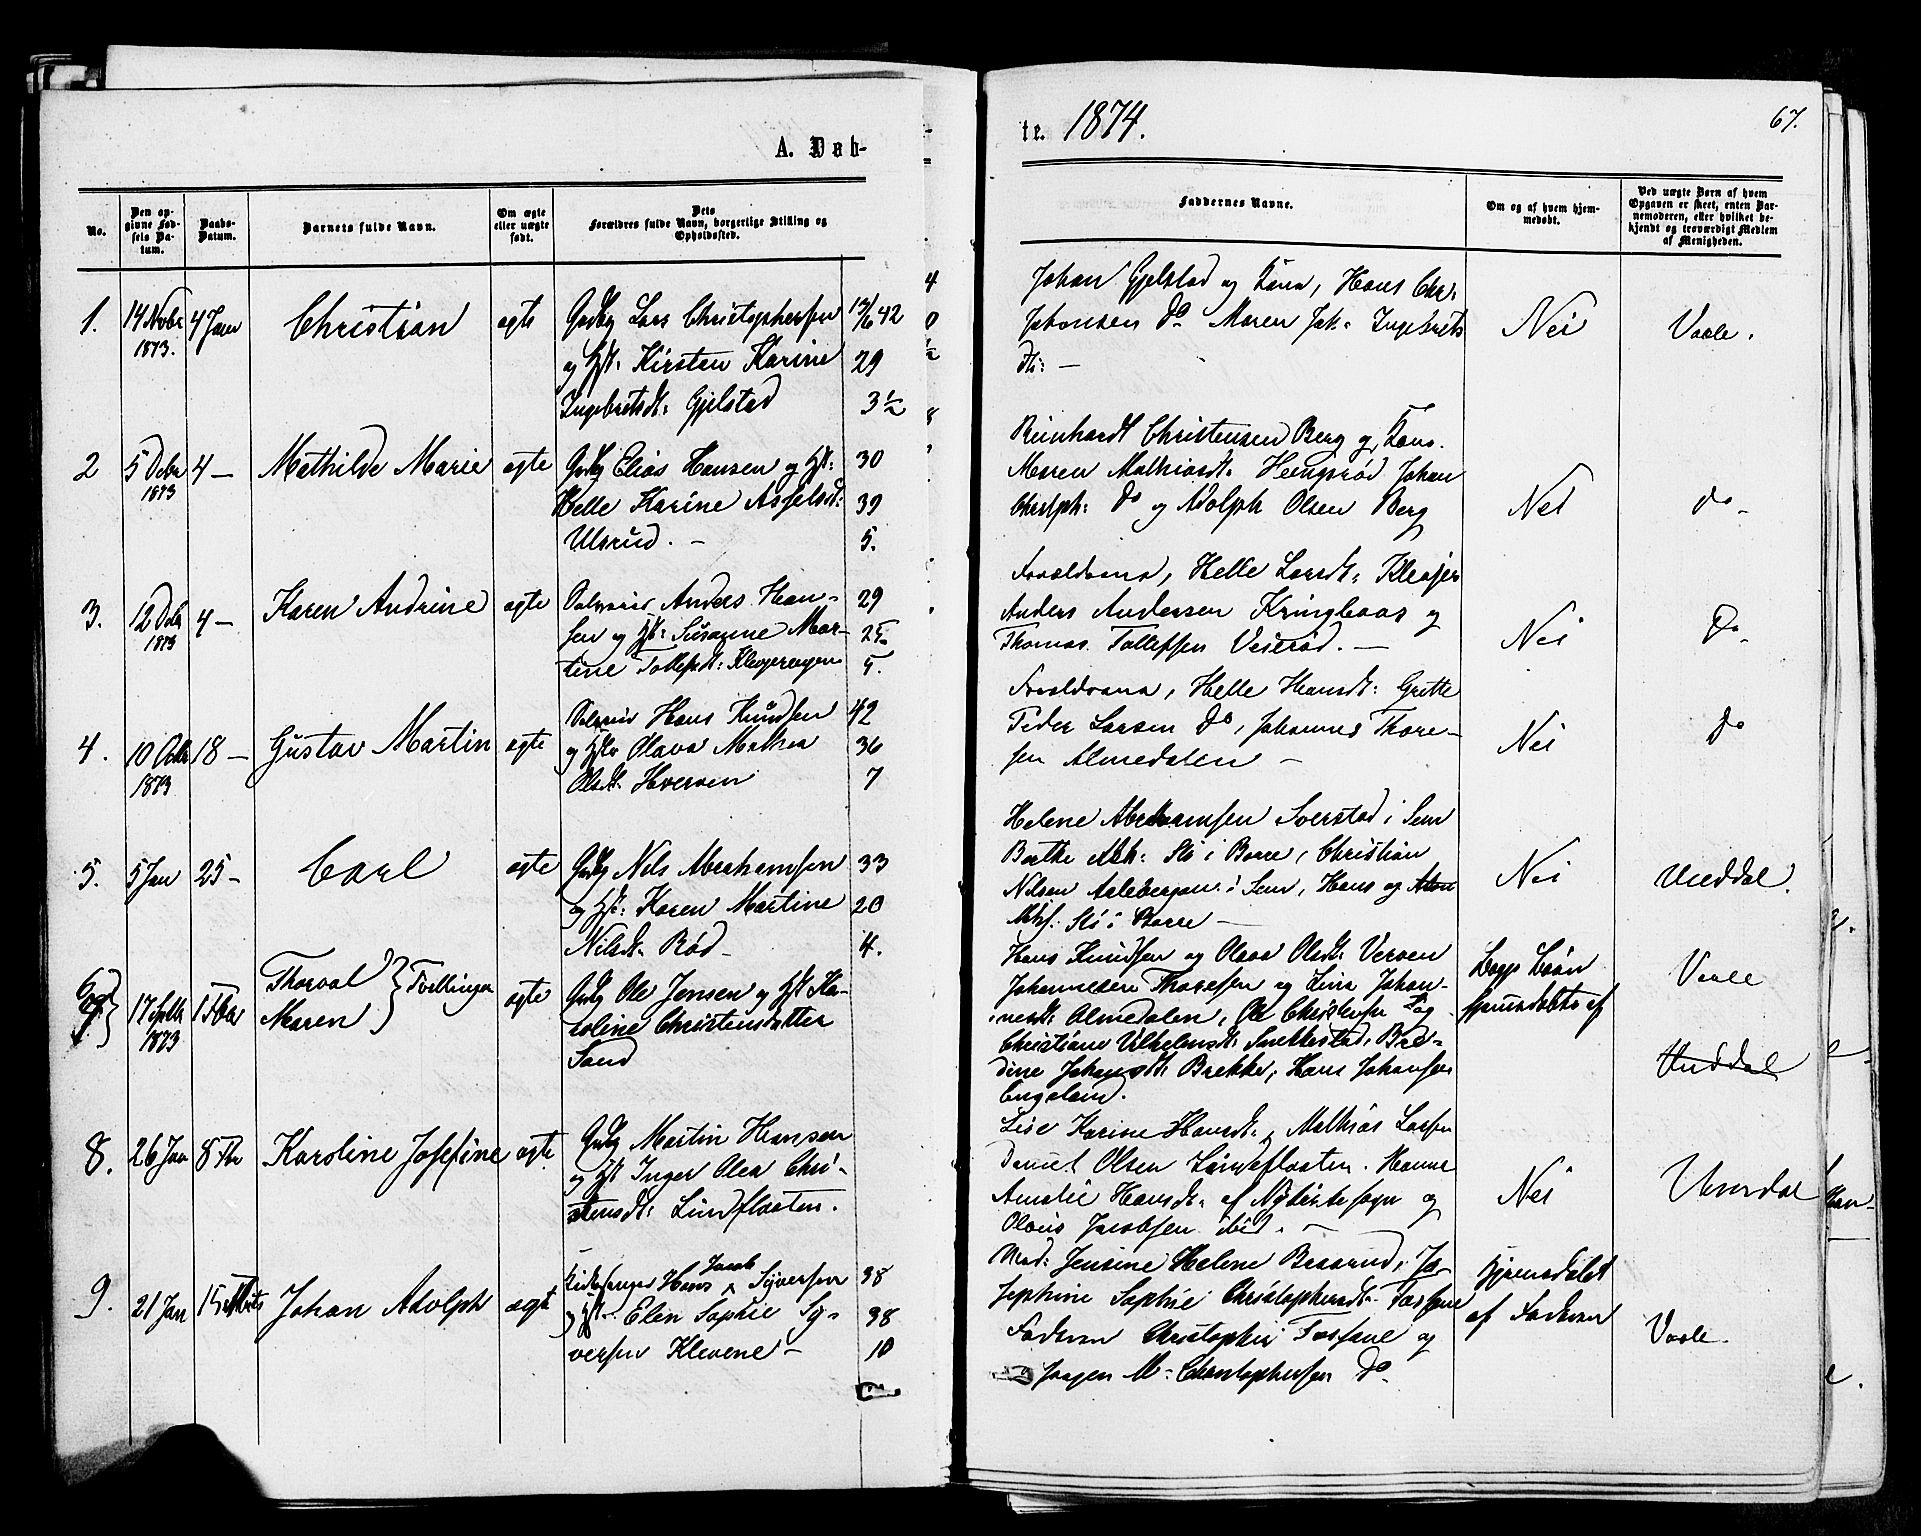 A. Døb-
te. 1874.
67.
No.
Den op-
givne Fød-
sels Da-
tum.
Daabs-
Datum.
Barnets fulde Navn.
Om ægte
eller uægte
født.
Dets
Forældres fulde Navn, borgerlige Stilling og
Opholdssted.
Faddernes Navne.
Om og af hvem hjem-
medøbt.
Ved uægte Børn af hvem
Opgaven er skeet, enten Bar-
nemoderen, eller hvilket be-
kjendt og troværdigt Medlem
af Menigheden.
1.
14 Novbr
1873.
4 Jan
Christian
ægte
Grdbg Lars Christophersen
og Hst: Kirsten Karine
Ingebretsdt: Gjelstad
13/6 42
29
3½
Johan Gjelstad og Kona, Hans Chr:
Johansen do Maren Joh: Ingebrets
dt: —
Nei
Vaale.
2
5 Debr
1873
4 —
Mathilde Marie
ægte
Grdbg Elias Hansen og Hst:
Helle Karine Axelsdt:
Ulsrud. —
30
39
5.
Reinhardt Christensen Berg og Kone.
Maren Mathiasdt: Hengsrød Johan
Christph: do og Adolph Olsen Berg
Nei
do
3.
12 Debr
1873
4 —
Karen Andrine
ægte
Anders Han-
sen og Hst: Susanne Mar-
tine Tollefsdt:
29
25
5.
Forældrene, Helle Larsdt:
Anders Andersen Kringlaas og
Thomas Tollefsen Veierød. —
Nei
Do
4.
10 Octbr
1873
18 —
Gustav Martin
ægte
Hans Knudsen
og Hst: Olava Mathea
Olsdt: Hverven
42
36
7
Forældrene, Helle Hansdt: Grette
Peder Larsen do, Johannes Thore-
sen Almedalen —
Nei
do
5.
5 Jan
25 —
Carl
ægte
Grdbg Nils Abrahamsen
og Hst: Karen Martine
Nilsdt: Rød —
33
20
4.
Helene Abrahamsen Sverstad i Sem
Berthe Abh: Sti i Borre, Christian
Nilsen Aulebergan i Sem, Hans og
Abhs. Sti i Borre —
Nei
Unddal.
6 og
7
17 Septbr
1873
1 Febr
Thorval
Maren
Tvillinger
ægte
Grdbg Ole Jensen og Hst Ka-
roline Christensdatter
Sand
Hans Knudsen og Olava Olsdt: Verven
Johannesen Thoresen og Lina Johan-
nesdt: Almedalen, Ole Christofersen og
Christiane Vilhelmsdt: Snekkestad, Bre-
dine Johansdt: Brekke, Hans Johansen
Engeland.
Begge Børn
hjemmedøbte af
Vaale
Unddal
8.
26 Jan
8 Febr
Karoline Josefine
ægte
Grdbg Martin Hansen
og Hst Inger Olea Chri-
stensdt: Lindfloaten.
Lise Karine Hansdt: og Mathias Larsen
Daniel Olsen Lindefloaten. Hanne
Amalie Hansdt: af Nykirke sogn og
Olaus Jacobsen ibid. —
Nei
Unndal
9.
21 Jan
15 Marts
Johan Adolph
ægte
Kirkesanger Hans Jacob Syversen
og Hst: Elen Sophie Sy-
versen Klevene —
38
38
10
Mad: Jensine Helene Basserud, Jo-
sephine Sophie Christophersdt: Fossane
Faderen Christopher Fossane og
Jørgen M: Christophersen do
Hjemmedøbt
af Faderen
Vaale.